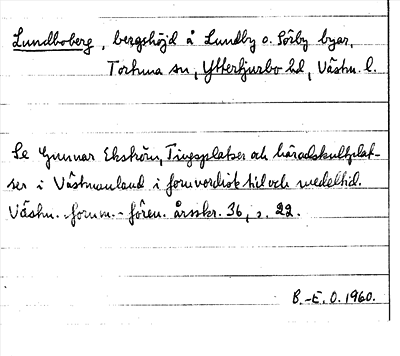 Lundboberg, bergshöjd å Lundby o. Sörby byar,
Tortuna sn, Ytterjurbo hd, Västm. l.
Se Gunnar Ekström, Tingsplatser och häradskultplat-
ser i Västmanland i fornnordisk tid och medeltid.
Västm. fornm.-fören. årsskr. 36, s. 22.
B.-E. O. 1960.